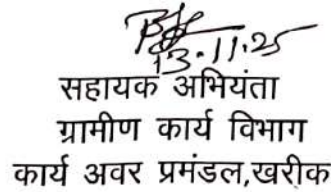 13.11.25
सहायक अभियंता
ग्रामीण कार्य विभाग
कार्य अवर प्रमंडल,खरीक